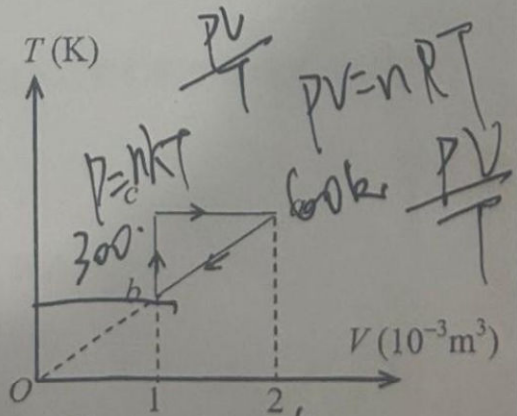 T (K)
PV/T
PV=nRT
P=nkT
c
600k
PV/T
300
b
V (10⁻³m³)
O
1
2